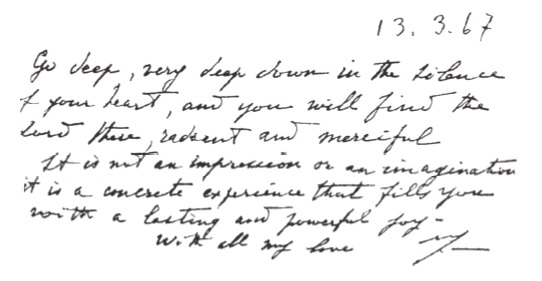 13. 3. 67
Go deep, very deep down in the silence
f your heart, and you will find the
Lord there, radient and merciful
It is not an impression or an imagination
it is a concrete experience that fills you
with a lasting and powerful joy -
With all my love